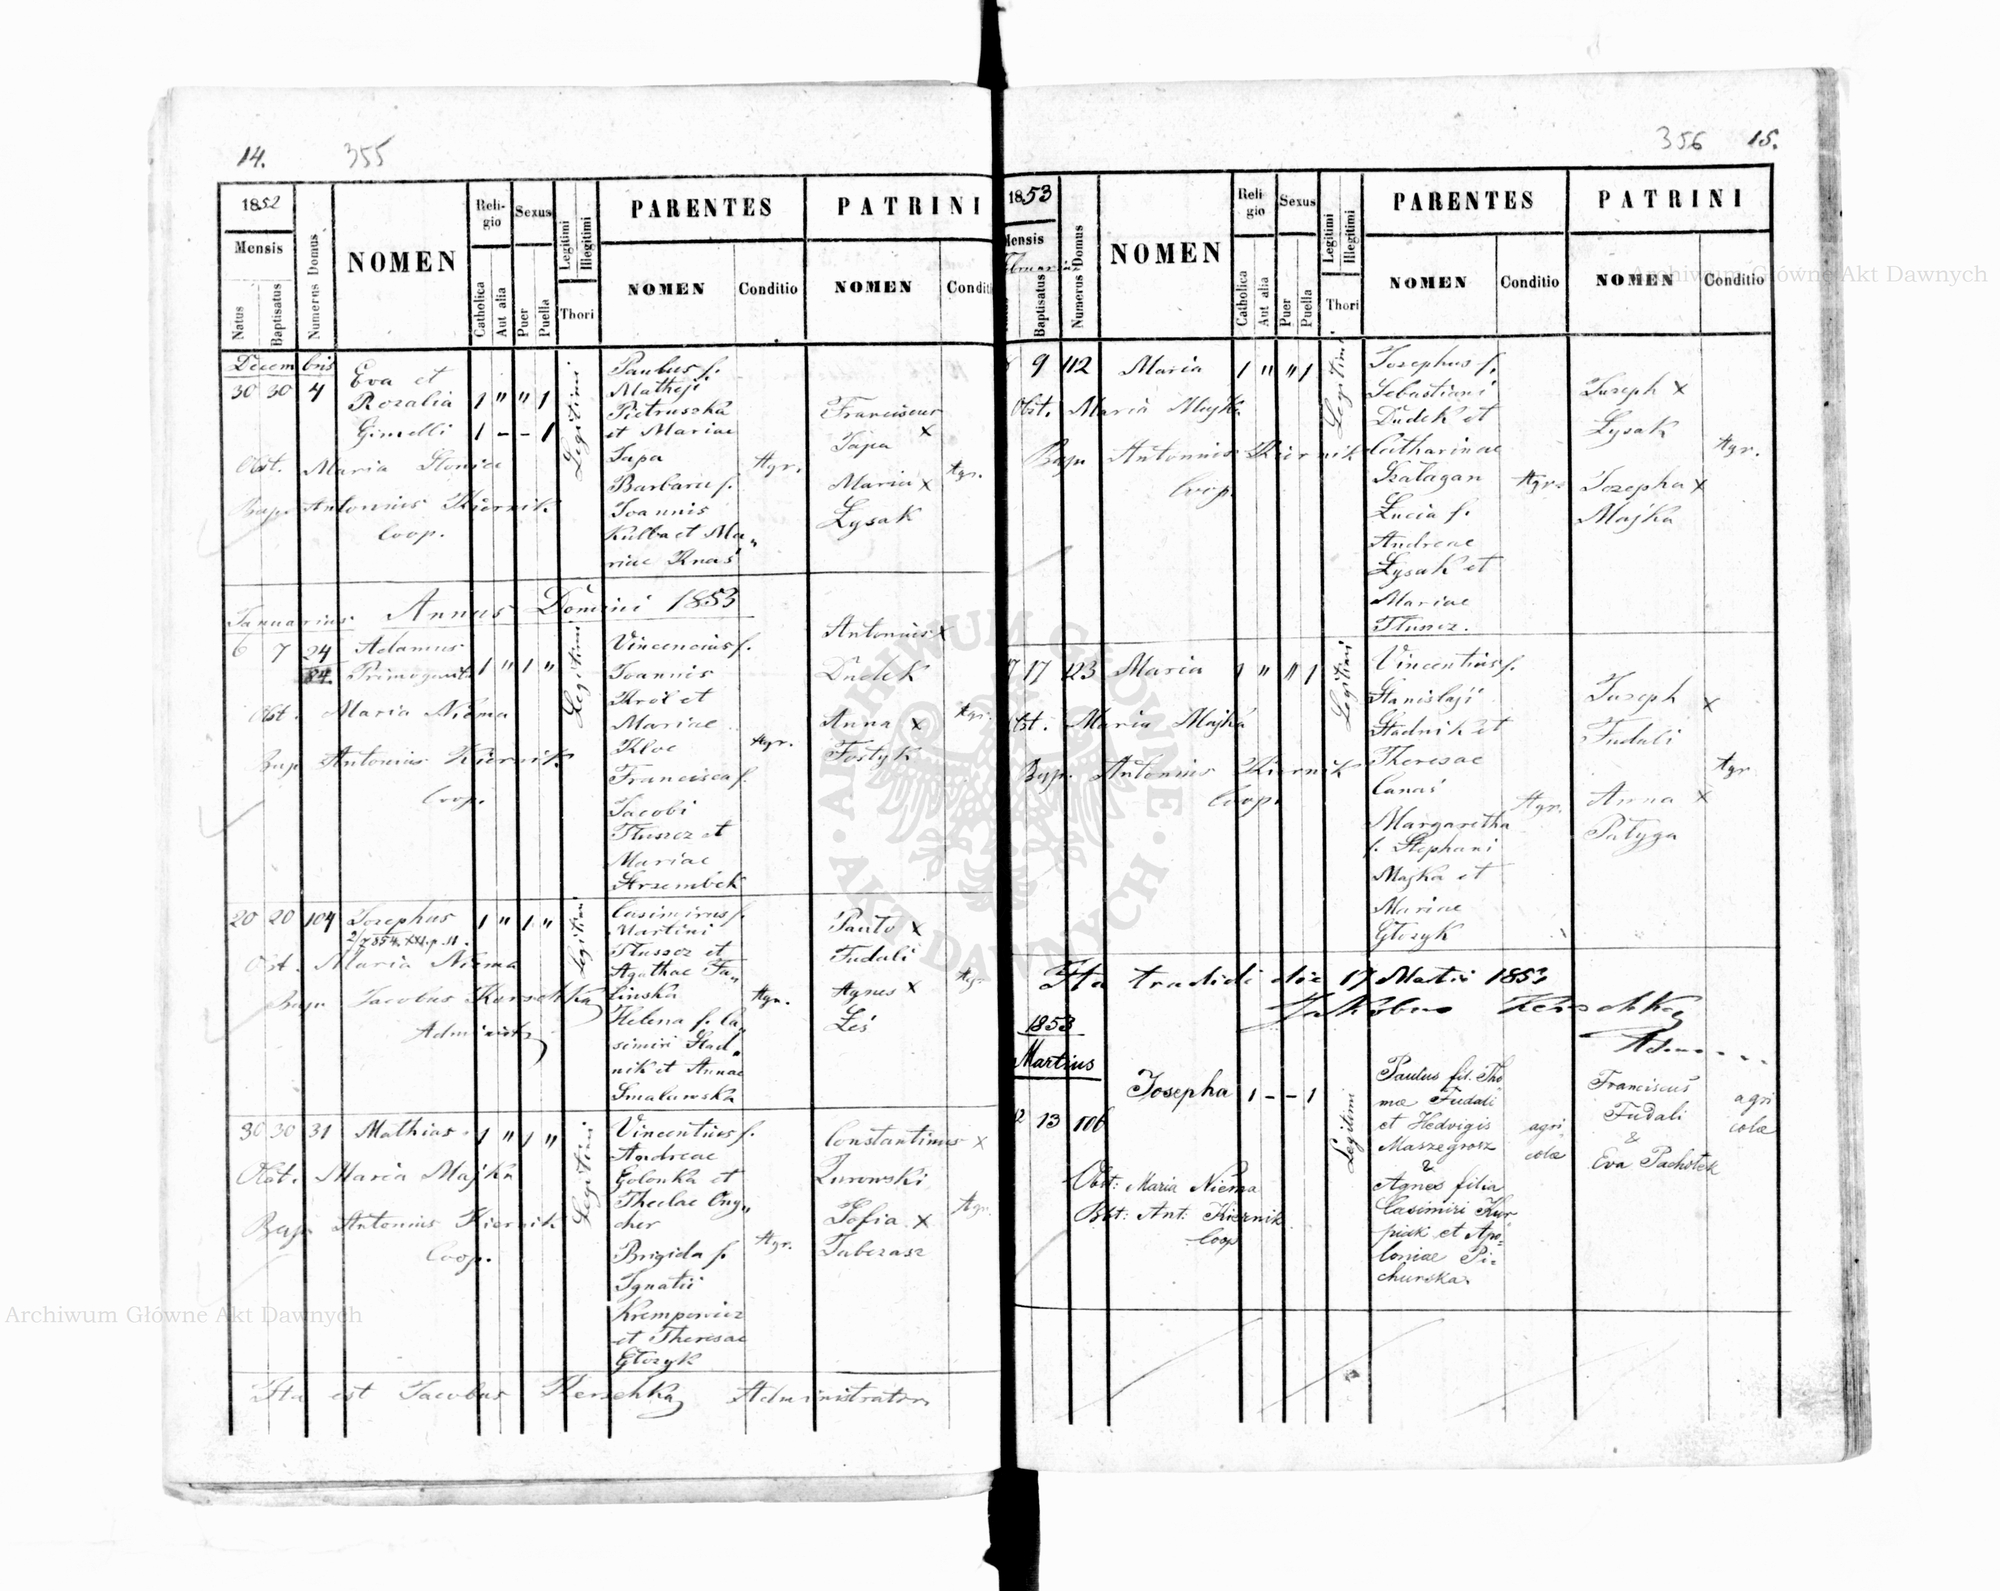 14.
355
1852
Mensis
Natus
Baptisatus
Numerus Domus
NOMEN
Reli-
gio
Catholica
Aut alia
Sexus
Puer
Puella
Legitimi
Illegitimi
Thori
PARENTES
NOMEN
Conditio
PATRINI
NOMEN
Conditi
Decembris
30 30 4
Eva et
Rozalia 1 " " 1
Gimelli 1 - - 1
Obst. Maria Słonica
Bap. Antonius Kiernik
Coop.
Legitimi
Paulus f.
Matheji
Pietruszka
et Mariae
Japa
Barbara f.
Joannis
Kulba et Ma„
riae Knaś
Agr.
Franciscus
x
Japa
Maria x
Łysak
Agr.
Januarius Annus Domini 1853
6 7 24
84.
Adamus
Primogenit. 1 " 1 "
Obst. Maria Niema
Bap. Antonius Kiernik
Coop.
Legitimi
Vincencius f.
Joannis
Król et
Mariae
Kloc
Francisca f.
Jacobi
Tłuszcz et
Mariae
Strzembek
Agr.
Antonius x
Dudek
Anna x
Fostyk
Agr.
20 20 104 Josephus 1 " 1 "
Obst. Maria Niema
Bap. Jacobus Kerschka
Administr
Legitimi
Casimirus f.
Martini
Tłuszcz et
Agathae Fa„
linska
Helena f. Ca„
simiri Stad„
nik et Annae
Smalawska
Agr.
Pauło x
Fudali
Agnes x
Leś
Agr
30 30 31 Mathias 1 " 1 "
Obst. Maria Majka
Bap. Antonius Kiernik
Coop.
Legitimi
Vincentius f.
Andreae
Golonka et
Theclae Ong„
cher
Brigida f.
Ignatii
Krempowicz
et Theresae
Głozyk
Agr.
Constantinus x
Zurowski
Zofia x
Tabczasz
Agr.
Ita est Jacobus Kerschka Administrator
356 15.
1853
Mensis
Februarii
Baptisatus
Numerus Domus
NOMEN
Reli-
gio
Catholica
Aut alia
Sexus
Puer
Puella
Legitimi
Illegitimi
Thori
PARENTES
NOMEN
Conditio
PATRINI
NOMEN
Conditio
9 112 Maria 1 " " 1
Obst. Maria Majka
Bap. Antonius Kiernik
Coop.
Legitimi
Josephus f.
Sebastiani
Dudek et
Catharinae
Szałagan
Łucia f.
Andreae
Łysak et
Mariae
Tłuszcz.
Agr.
Joseph x
Łysak
Josepha x
Majka
Agr.
17 17 123 Maria 1 " " 1
Obst. Maria Majka
Bap. Antonius Kiernik
Coop.
Legitimi
Vincentius f.
Stanislaji
Stadnik et
Theresae
Canaś
Margaretha
f. Stephani
Majka et
Mariae
Głozyk
Agr.
Joseph x
Fudali
Anna x
Patyga
Agr
Ita tradidi die 17 Martii 1853
Jakobus Kerschka
1853
Martius
12 13 106
Josepha 1 - - 1
Obst: Maria Niema
Bbt: Ant: Kiernik
Coop
Legitimi
Paulus fil. Tho
mæ Fudali
et Hedvigis
Maszegrosz
&
Agnes filia
Casimiri Kur
piuk et Apo=
loniae Pi-
churska.
agri
colæ
Franciscus
Fudali
&
Eva Pachołek
agri
colæ
Archiwum Główne Akt Dawnych
Archiwum Główne Akt Dawnych
ARCHIWUM GŁÓWNE AKT DAWNYCH